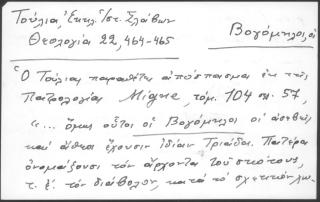 Τούλια, Ἐκκλ. Ἱστ. Σλάβων
Θεολογία 22, 464-465
Βογόμηλοι, οἱ
Ὁ Τούλιας παραθέτει ἀπόσπασμα ἐκ τῆς
Πατρολογίας Migne, τόμ. 104 σελ. 57,
«... ὅμως οὗτοι οἱ Βογόμηλοι οἱ ἀσεβεῖς
καὶ ἄθεοι ἔχουσιν ἰδίαν Τριάδα. Πατέρα
ὀνομάζουσι τὸν ἄρχοντα τοῦ σκότους,
τ. ἔ. τὸν διάβολον, κατὰ τὸ σχετικὸν